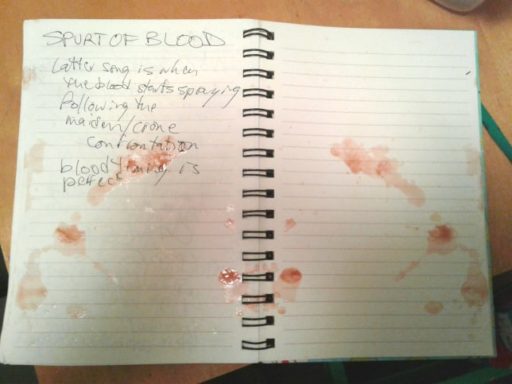 SPURT OF BLOOD
Latter song is when
the blood starts spraying
following the
maiden/crone
confrontation
blood timing is
perfect